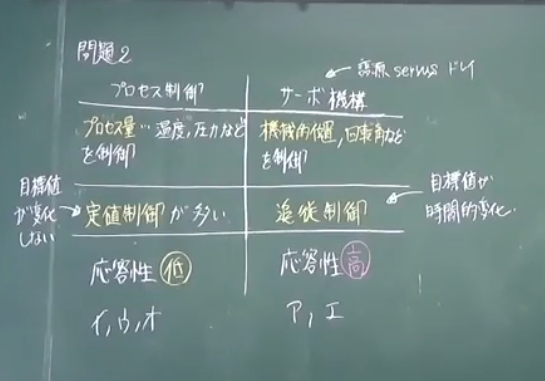 問題2
プロセス制御
サーボ機構
← 語源 servus ドレイ
プロセス量…温度,圧力など
を制御
機械的位置,回転角など
を制御
目標値
が変化
しない
定値制御が多い
追従制御
目標値が
時間的変化
応答性 低
応答性 高
イ,ウ,オ
ア,エ